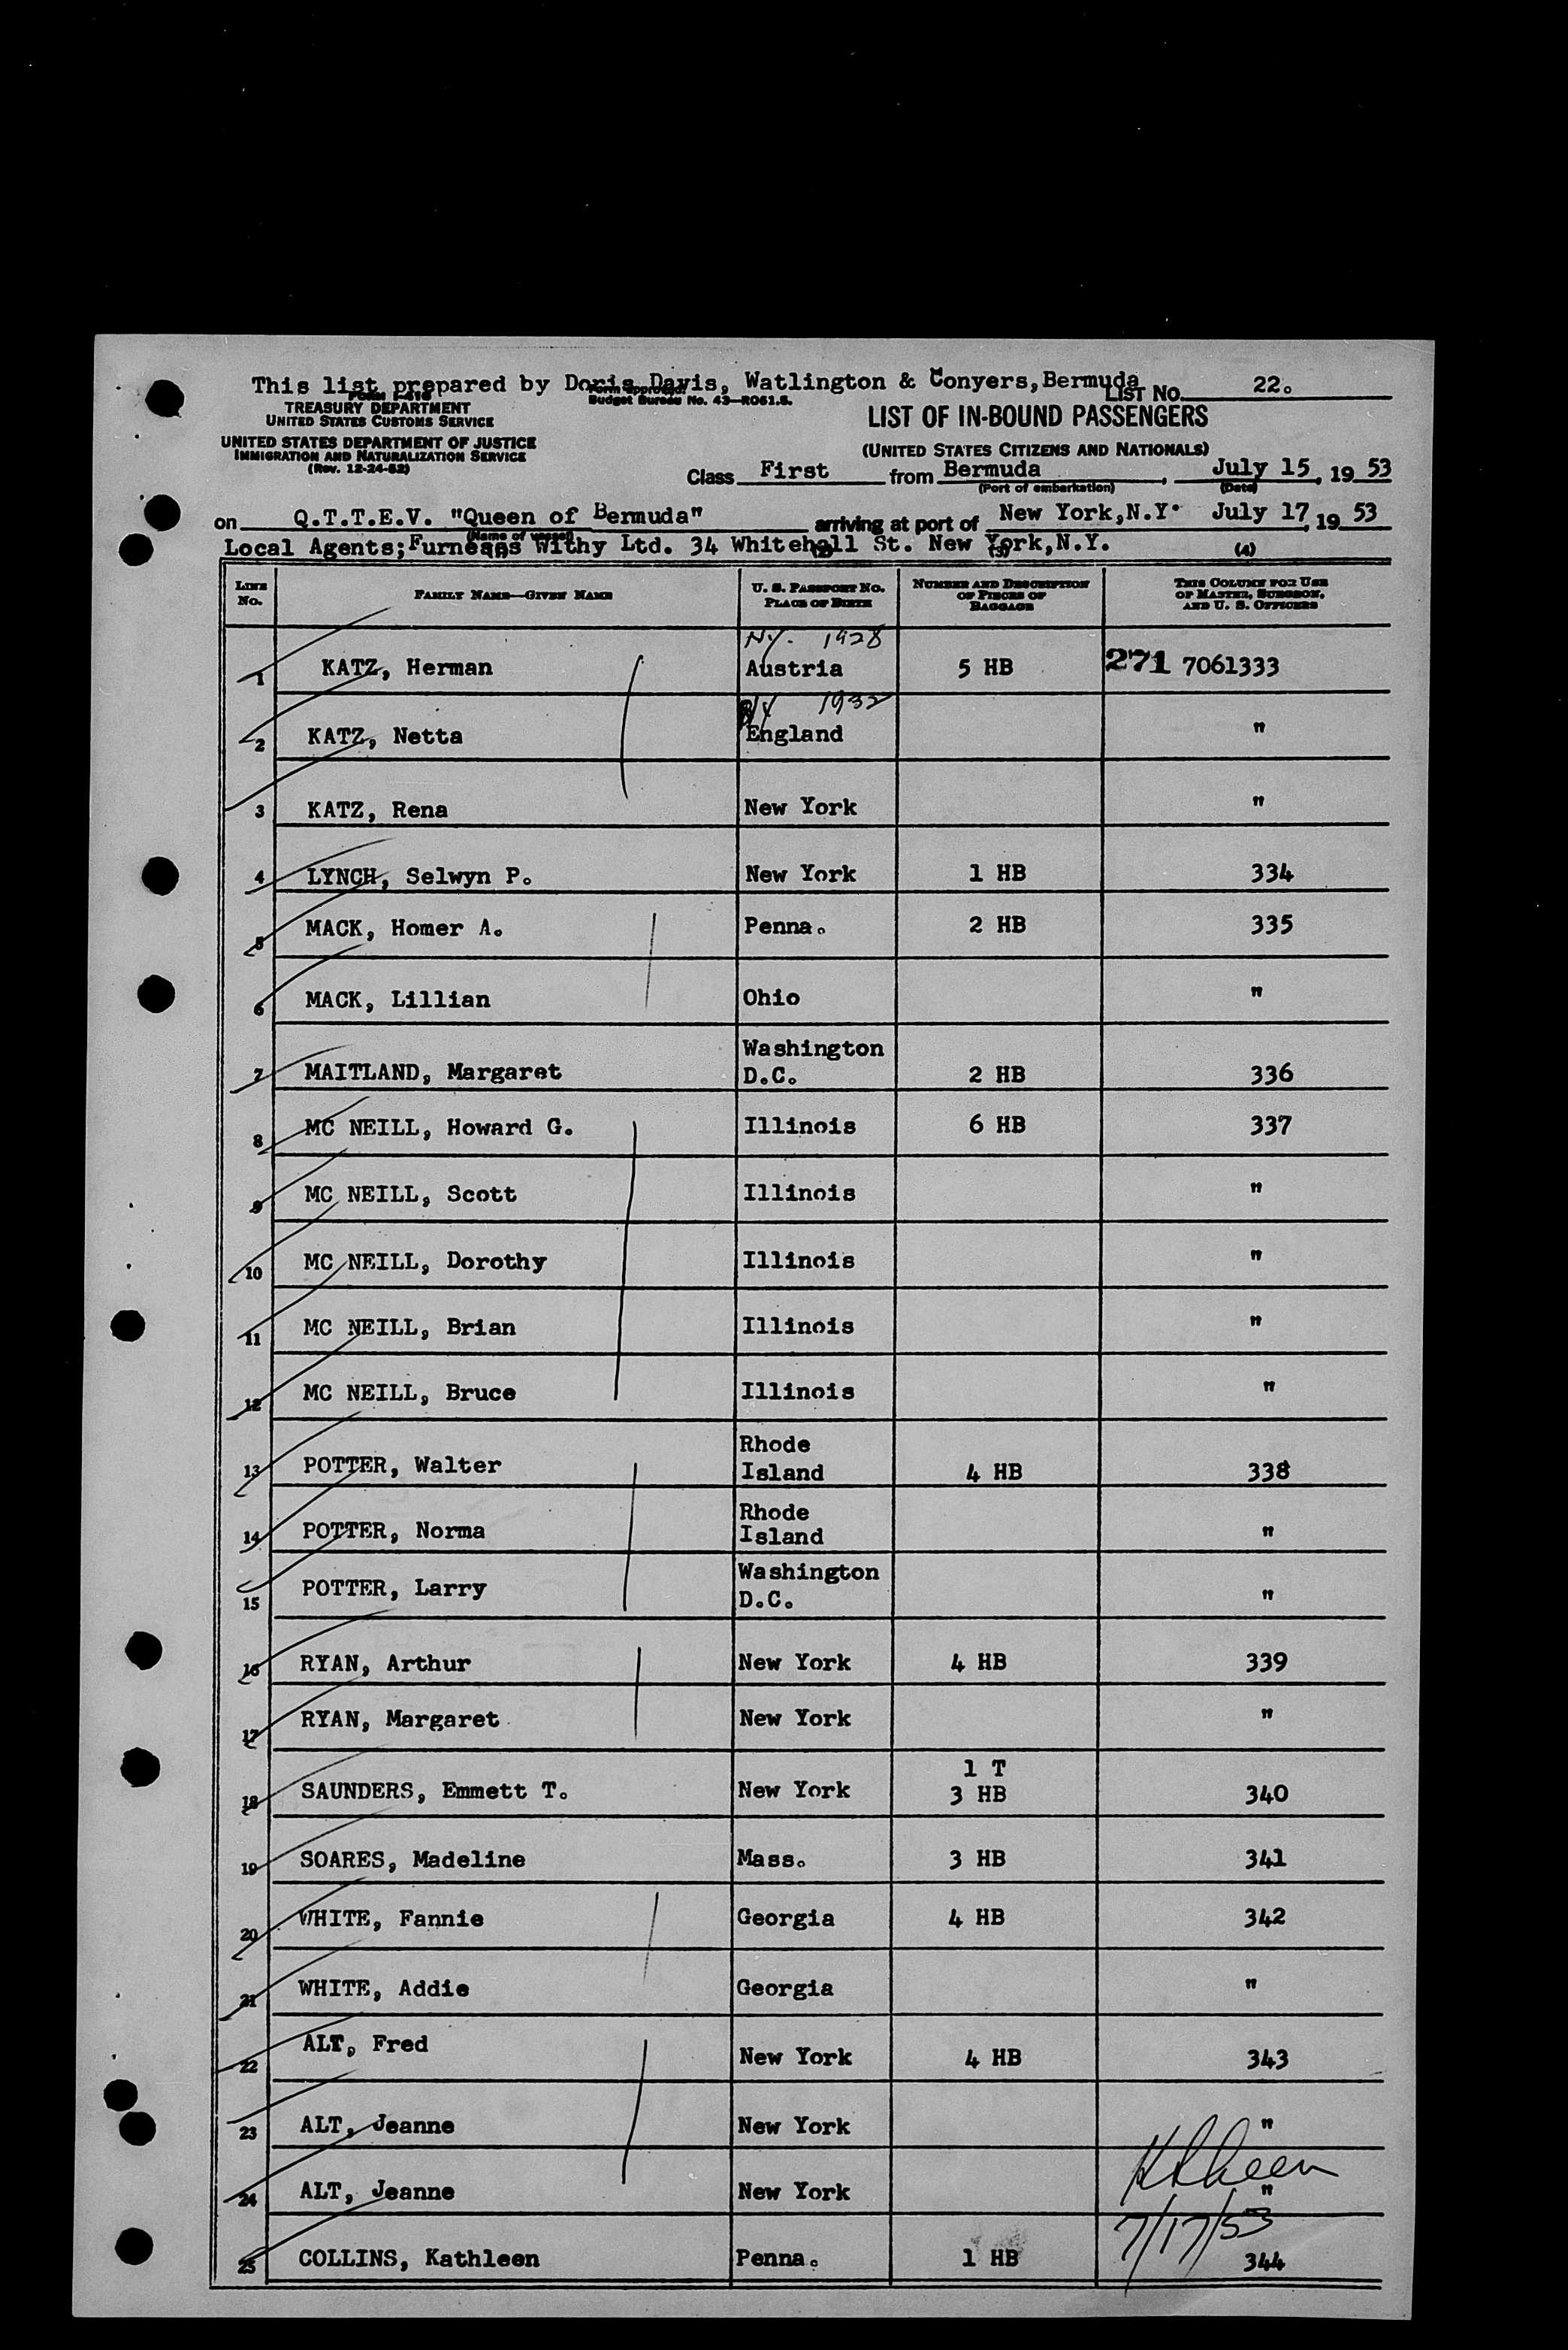 This list prepared by Doris Davis, Watlington & Conyers, Bermuda
LIST No. 22.
FORM I-416
TREASURY DEPARTMENT
UNITED STATES CUSTOMS SERVICE
UNITED STATES DEPARTMENT OF JUSTICE
IMMIGRATION AND NATURALIZATION SERVICE
(Rev. 12-24-52)
Form approved.
Budget Bureau No. 43—R061.5.
LIST OF IN-BOUND PASSENGERS
(UNITED STATES CITIZENS AND NATIONALS)
Class First from Bermuda, July 15, 19 53
(Port of embarkation) (Date)
on Q.T.T.E.V. "Queen of Bermuda" arriving at port of New York, N.Y. July 17, 19 53
(Name of vessel)
Local Agents; Furness Withy Ltd. 34 Whitehall St. New York, N.Y.
(1) (2) (3) (4)
LINE No. FAMILY NAME—GIVEN NAME U. S. PASSPORT No. PLACE OF BIRTH NUMBER AND DESCRIPTION OF PIECES OF BAGGAGE THIS COLUMN FOR USE OF MASTER, SURGEON, AND U. S. OFFICERS
N.Y. 1928
1 KATZ, Herman Austria 5 HB 271 7061333
NY 1932
2 KATZ, Netta England "
3 KATZ, Rena New York "
4 LYNCH, Selwyn P. New York 1 HB 334
5 MACK, Homer A. Penna. 2 HB 335
6 MACK, Lillian Ohio "
7 MAITLAND, Margaret Washington D.C. 2 HB 336
8 MC NEILL, Howard G. Illinois 6 HB 337
9 MC NEILL, Scott Illinois "
10 MC NEILL, Dorothy Illinois "
11 MC NEILL, Brian Illinois "
12 MC NEILL, Bruce Illinois "
13 POTTER, Walter Rhode Island 4 HB 338
14 POTTER, Norma Rhode Island "
15 POTTER, Larry Washington D.C. "
16 RYAN, Arthur New York 4 HB 339
17 RYAN, Margaret New York "
18 SAUNDERS, Emmett T. New York 1 T 3 HB 340
19 SOARES, Madeline Mass. 3 HB 341
20 WHITE, Fannie Georgia 4 HB 342
21 WHITE, Addie Georgia "
22 ALT, Fred New York 4 HB 343
23 ALT, Jeanne New York "
24 ALT, Jeanne New York "
7/17/53
25 COLLINS, Kathleen Penna. 1 HB 344